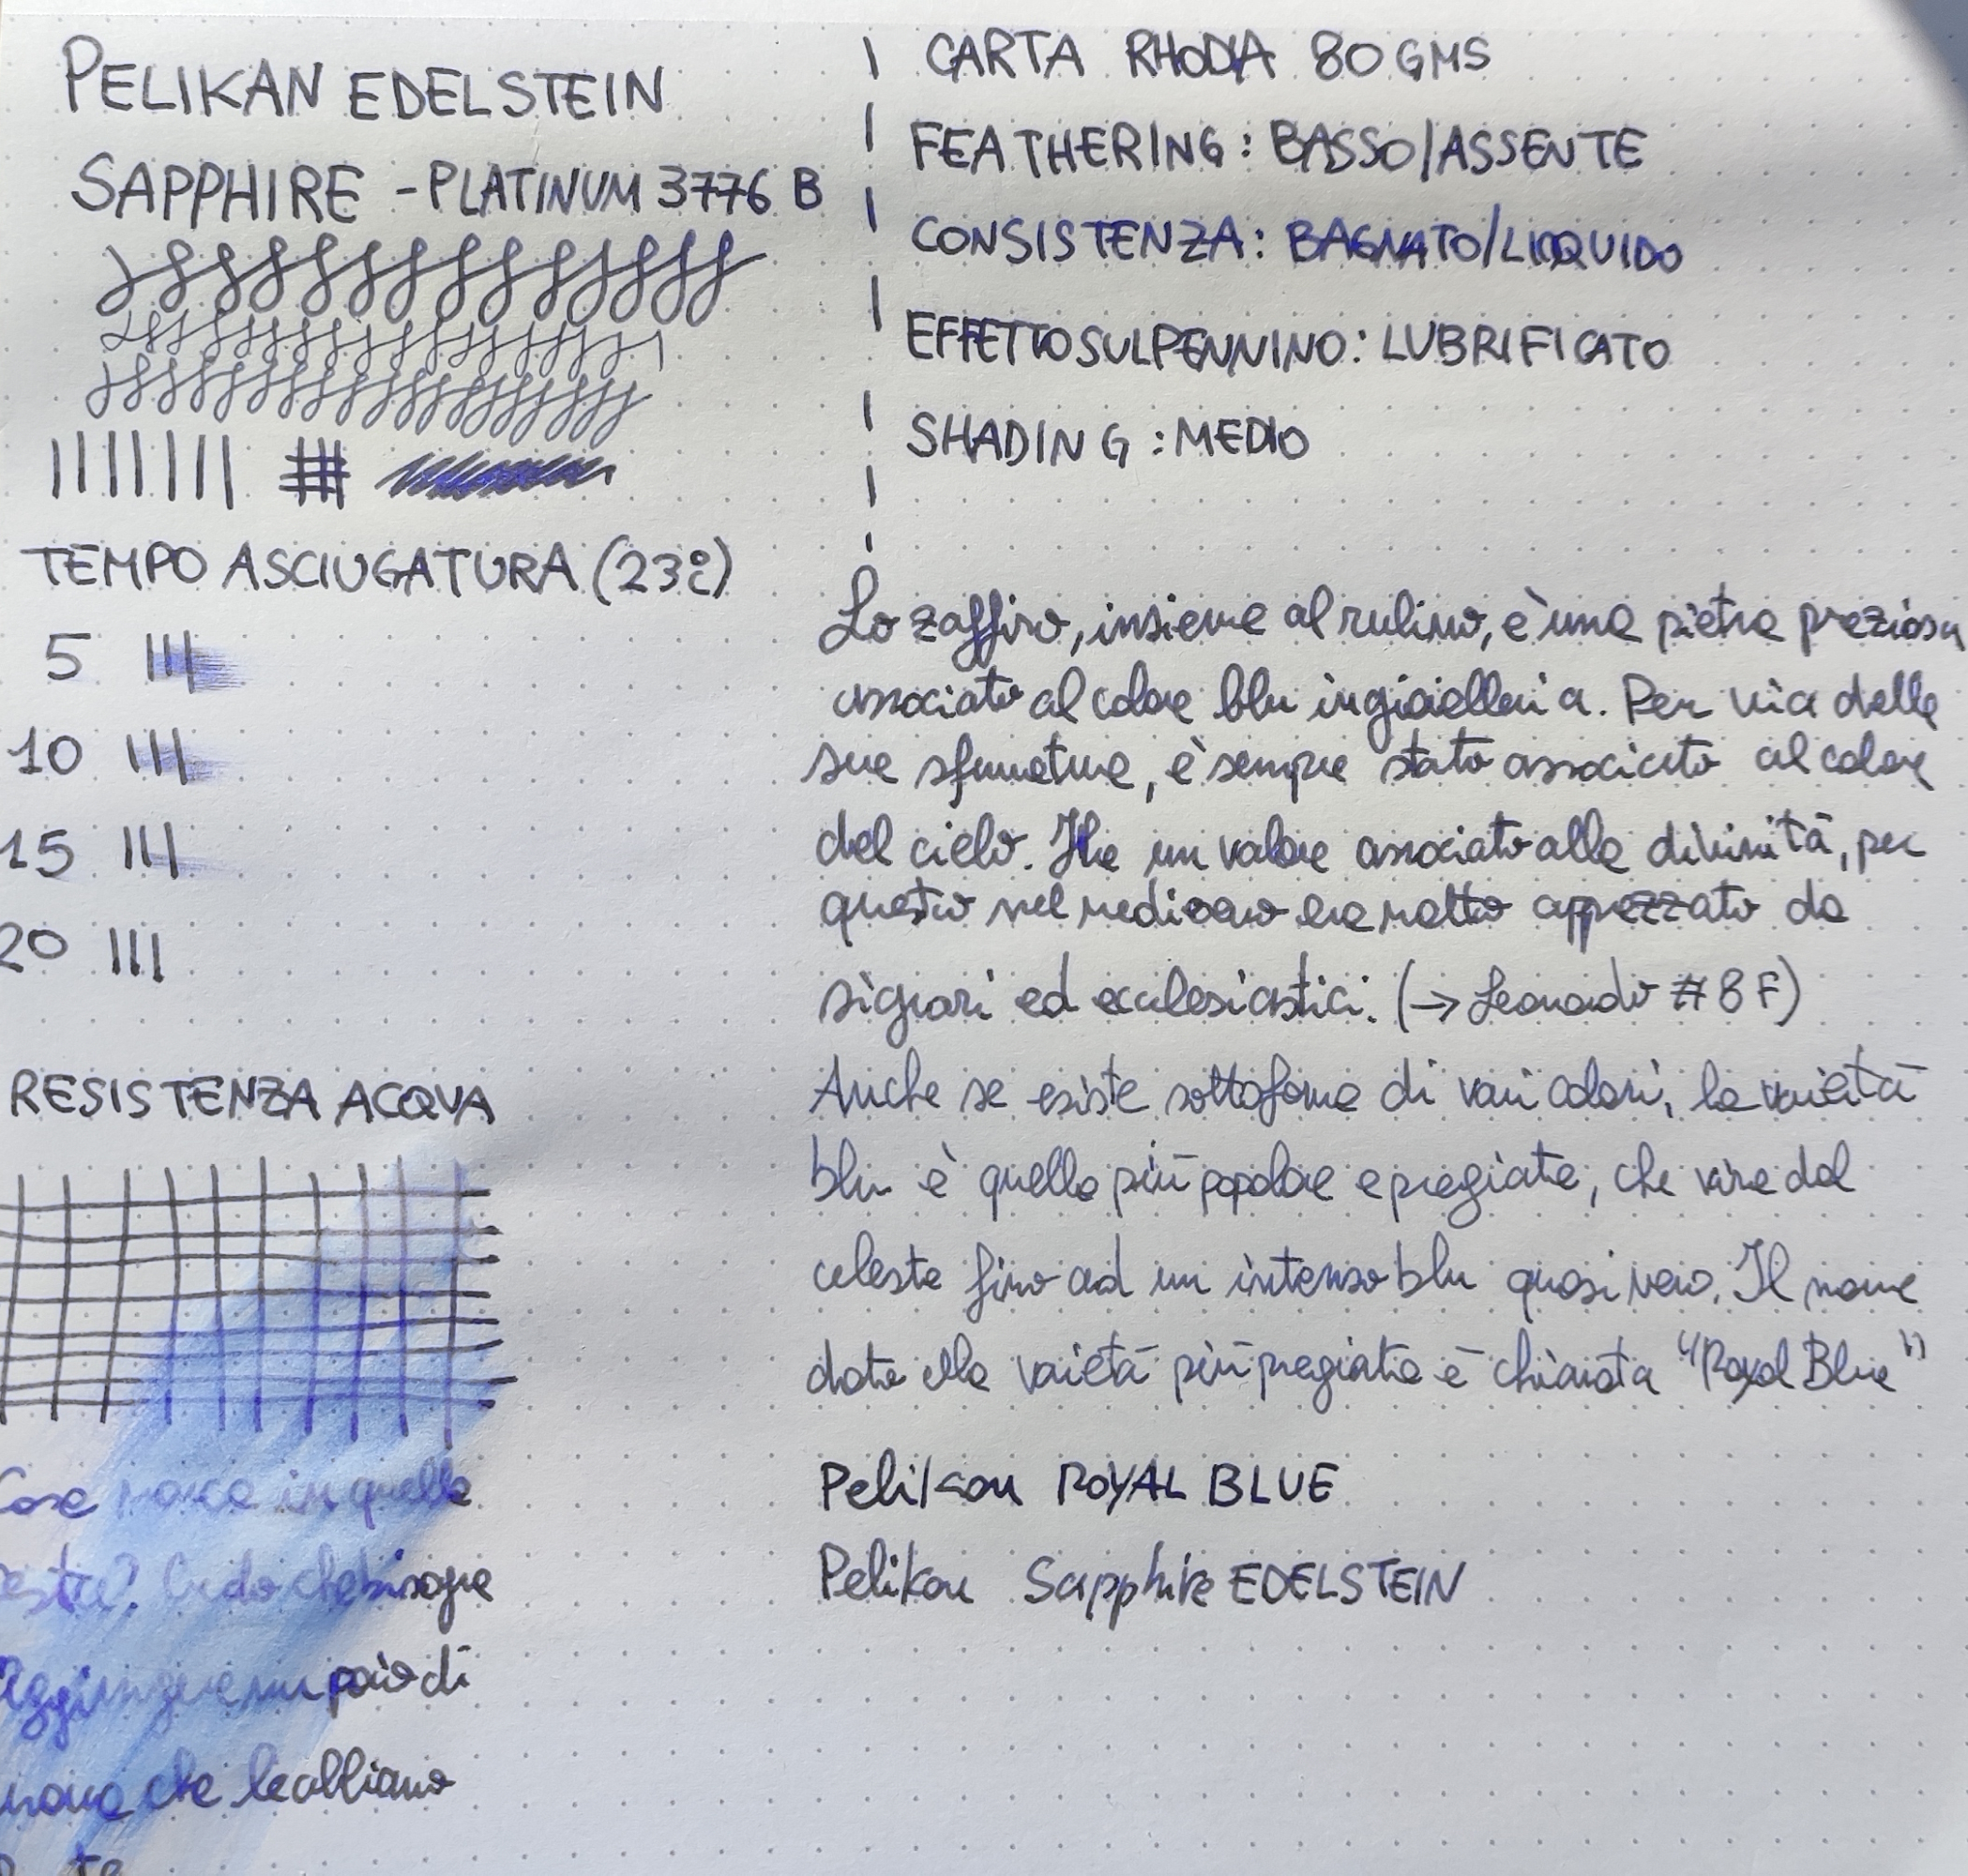 PELIKAN EDELSTEIN
SAPPHIRE - PLATINUM 3776 B
TEMPO ASCIUGATURA (23°C)
5
10
15
20
RESISTENZA ACQUA
in quella
Credo che bisogna
un paio di
che le abbiano
CARTA RHODIA 80 GMS
FEATHERING: BASSO/ASSENTE
CONSISTENZA: BAGNATO/LIQUIDO
EFFETTO SUL PENNINO: LUBRIFICATO
SHADING: MEDIO
Lo zaffiro, insieme al rubino, è una pietra preziosa
associato al colore blu in gioielleria. Per via delle
sue sfumature, è sempre stato associato al colore
del cielo. Ha un valore associato alla divinità, per
questo nel medioevo era molto apprezzato da
signori ed ecclesiastici. (→ Leonardo #8 F)
Anche se esiste sottoforma di vari colori, la varietà
blu è quella più popolare e pregiata, che vira dal
celeste fino ad un intenso blu quasi nero. Il nome
dato alla varietà più pregiata è chiamata "Royal Blue"
Pelikan ROYAL BLUE
Pelikan Sapphire EDELSTEIN